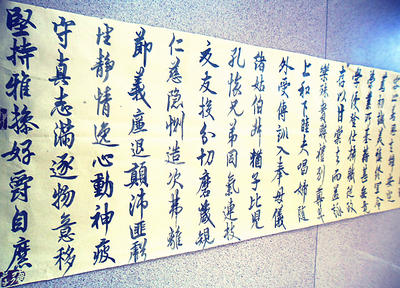 容止若思言辭安定
篤初誠美慎終宜令
榮業所基籍甚無竟
學優登仕攝職從政
存以甘棠去而益詠
樂殊貴賤禮別尊卑
上和下睦夫唱婦隨
外受傅訓入奉母儀
諸姑伯叔猶子比兒
孔懷兄弟同氣連枝
交友投分切磨箴規
仁慈隱惻造次弗離
節義廉退顛沛匪虧
性靜情逸心動神疲
守真志滿逐物意移
堅持雅操好爵自縻